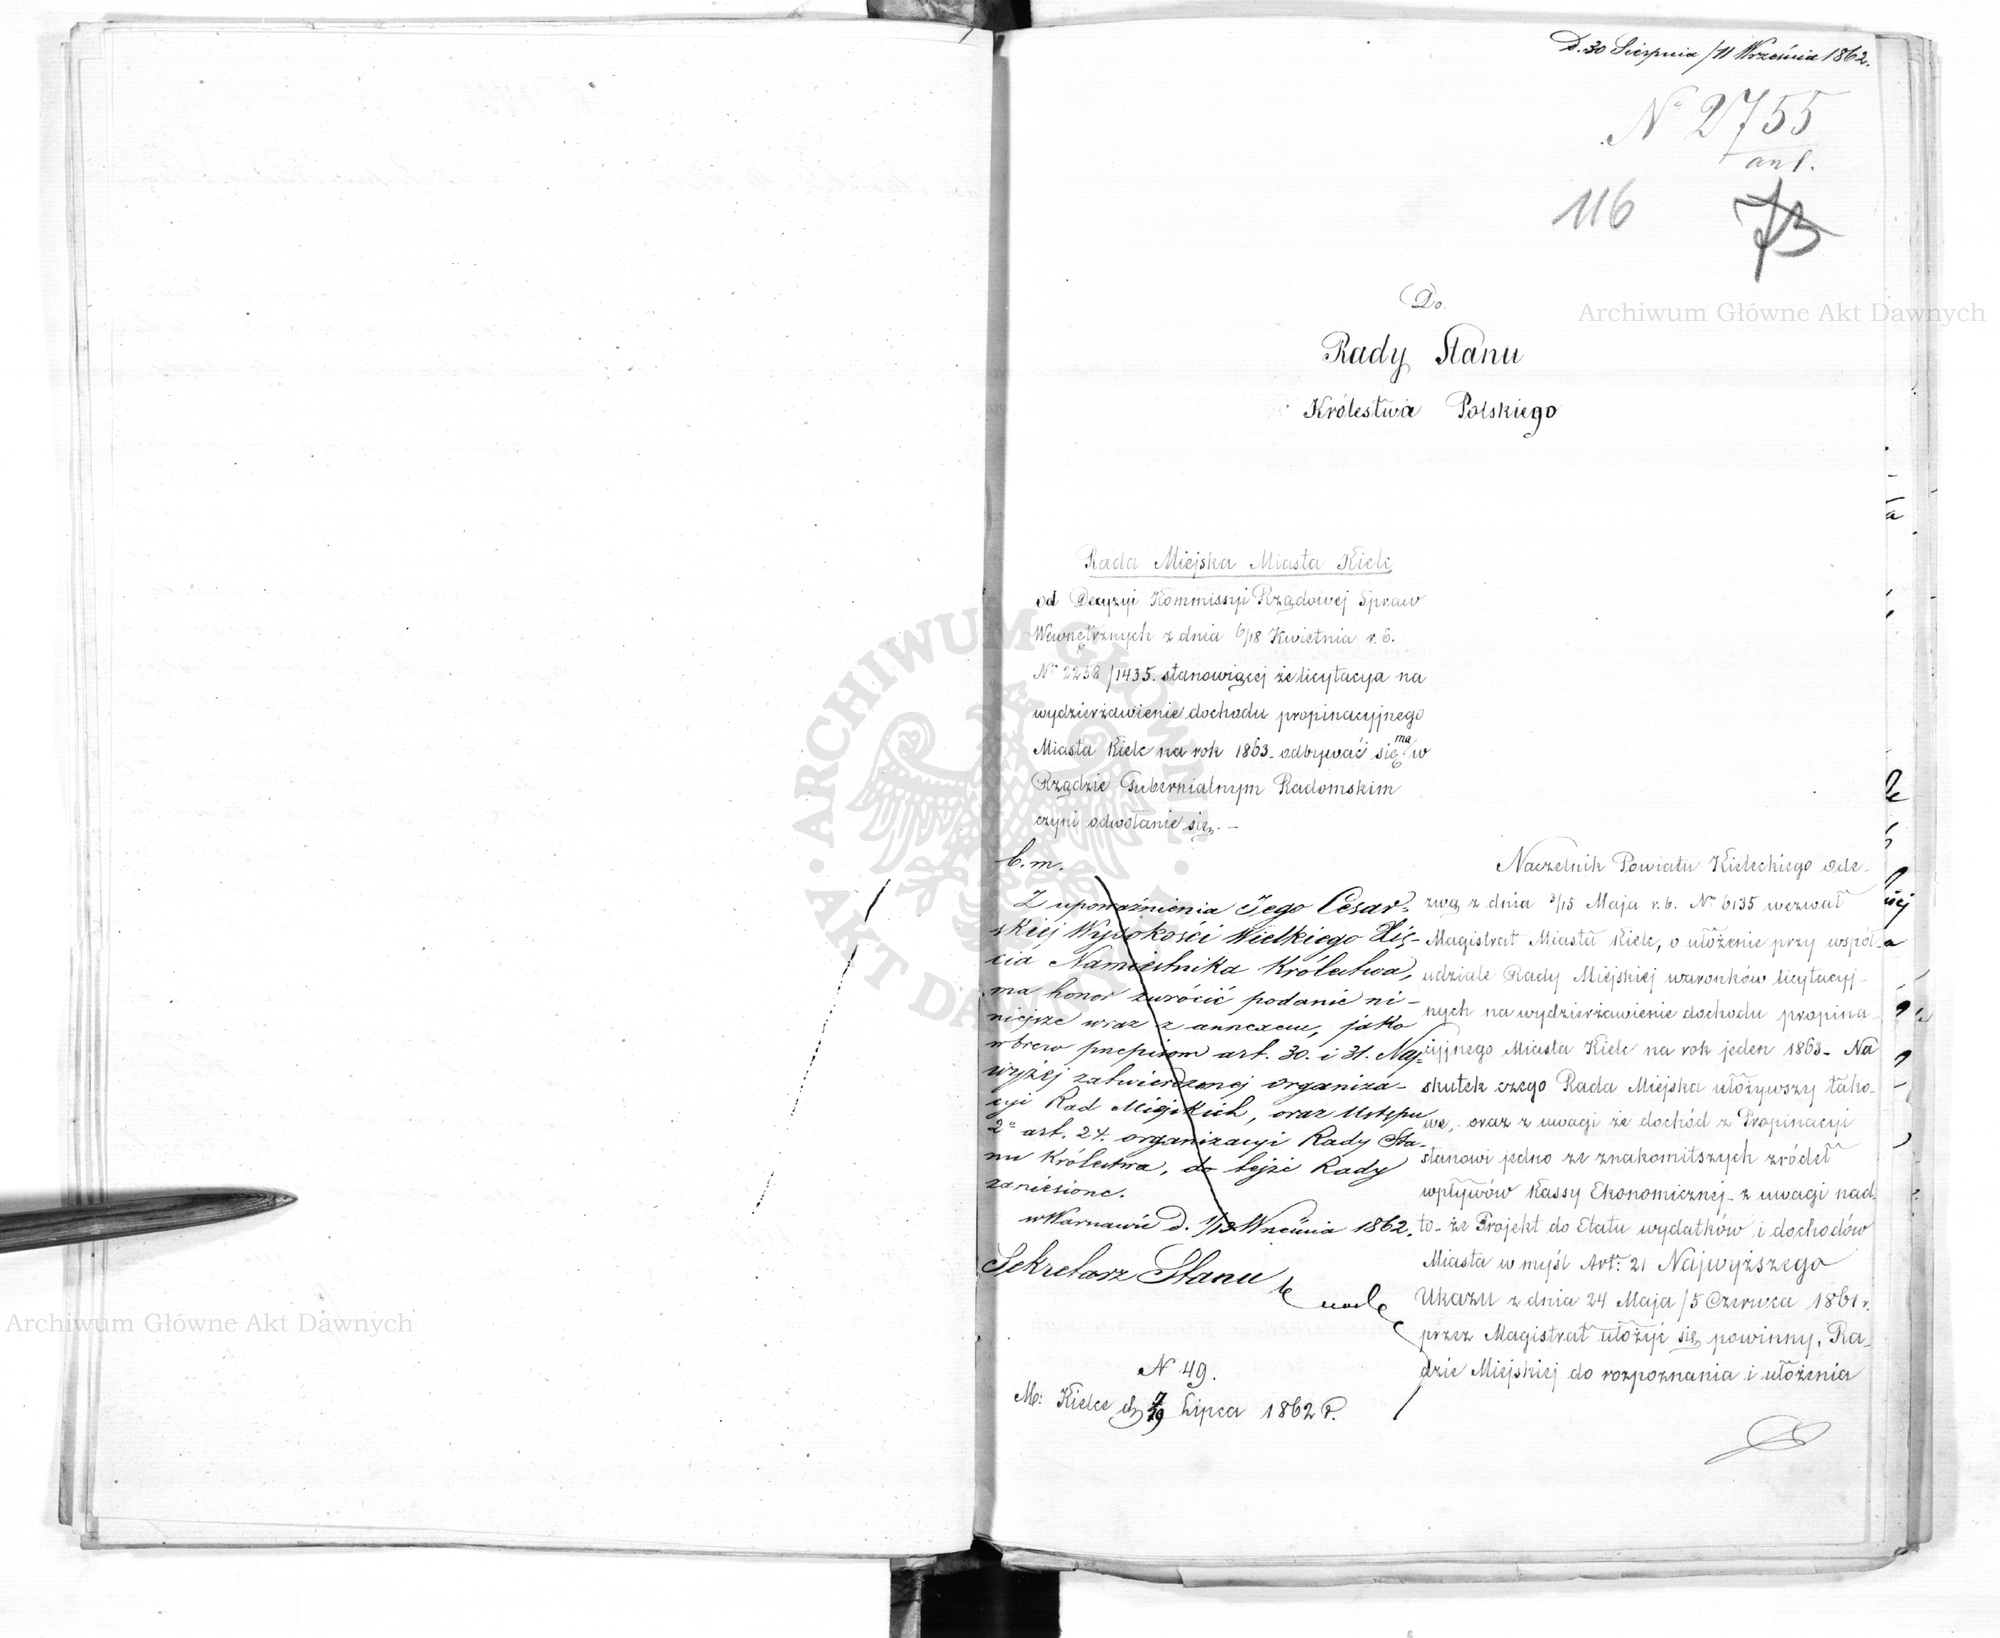 D. 30 Sierpnia / 11 Września 1862.
No 2755
ant.
116
73
Do
Rady Stanu
Królestwa Polskiego
Rada Miejska Miasta Kielc
od Decyzyi Kommissyi Rządowej Spraw
Wewnętrznych z dnia 6/18 Kwietnia r. b.
No 2258/1435. stanowiącej że licytacya na
wydzierżawienie dochodu propinacyjnego
Miasta Kielc na rok 1863 odbywać się ma w
Rządzie Gubernialnym Radomskim
czyni odwołanie się. —
b. m.
Z upoważnienia Jego Cesar-
skiej Wysokości Wielkiego Xię-
cia Namiestnika Królestwa,
ma honor zwrócić podanie ni-
niejsze wraz z annexem, jako
wbrew przepisom art. 30. i 31. Naj-
wyżej zatwierdzonej organiza-
cyi Rad Miejskich, oraz Ustępu
2o art. 24. organizacyi Rady Sta-
nu Królestwa, do tejże Rady
zaniesione.
w Warszawie D. 1/13 Września 1862.
Sekretarz Stanu
N 49.
M: Kielce d. 7/19 Lipca 1862 r.
Naczelnik Powiatu Kieleckiego ode-
zwą z dnia 3/15 Maja r. b. No 6135 wezwał
Magistrat Miasta Kielc, o ułożenie przy współ-
udziale Rady Miejskiej warunków licytacyj-
nych na wydzierżawienie dochodu propina-
cyjnego Miasta Kielc na rok jeden 1863 - Na
skutek czego Rada Miejska ułożywszy tako-
we, oraz z uwagi że dochód z Propinacyi
stanowi jedno ze znakomitszych źródeł
wpływów Kassy Ekonomicznej - z uwagi nad-
to - że Projekt do Etatu wydatków i dochodów
Miasta w myśl Art: 21 Najwyższego
Ukazu z dnia 24 Maja / 5 Czerwca 1861 r.
przez Magistrat ułożyć się powinny, Ra-
dzie Miejskiej do rozpoznania i ułożenia
Archiwum Główne Akt Dawnych
Archiwum Główne Akt Dawnych
ARCHIWUM GŁÓWNE AKT DAWNYCH